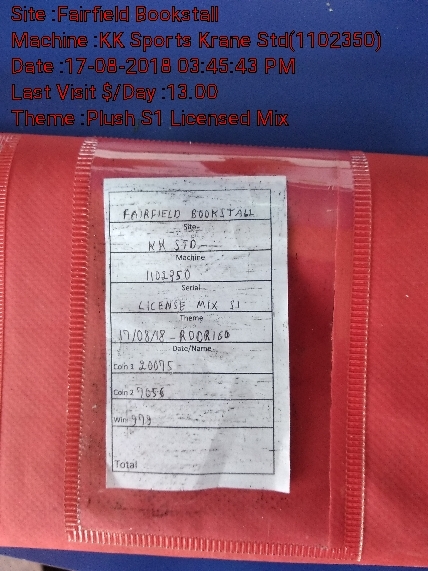 Site :Fairfield Bookstall
Machine :KK Sports Krane Std(1102350)
Date :17-08-2018 03:45:43 PM
Last Visit $/Day :13.00
Theme :Plush S1 Licensed Mix
FAIRFIELD BOOKSTALL
Site
KK STD
Machine
1102350
Serial
LICENSE MIX S1
Theme
17/08/18 - RODRIGO
Date/Name
Coin 1 20075
Coin 2 7056
Win 979
Total